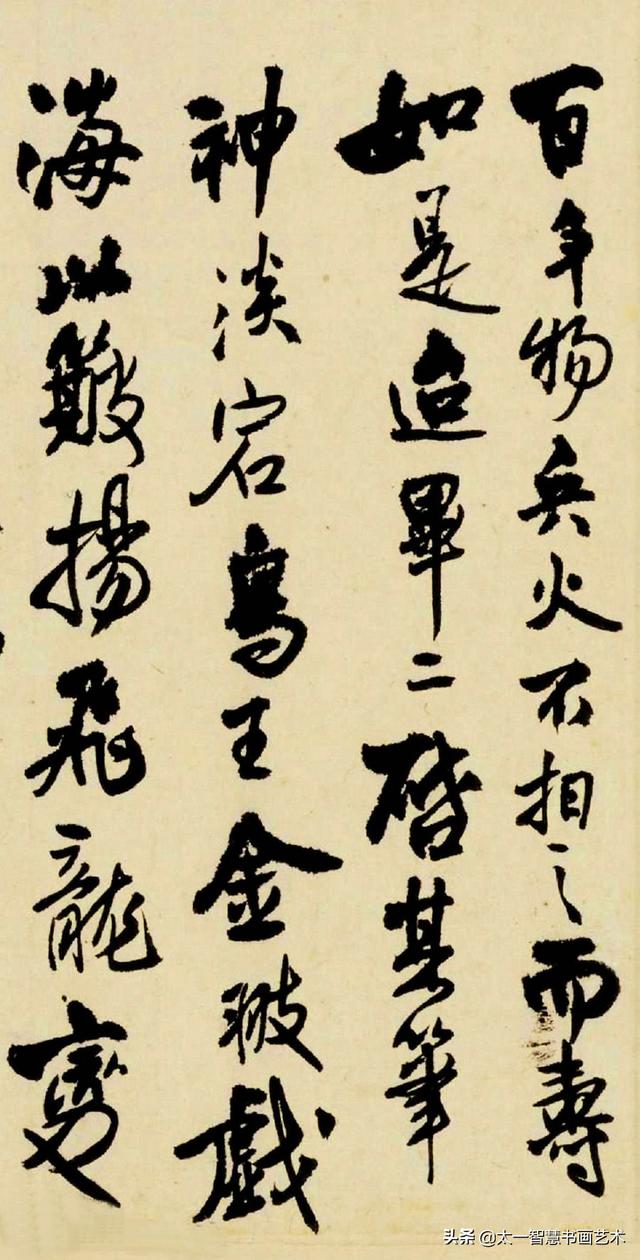 百年物兵火不相之而壽
如是迨畢二啓其筆
神淡宕鳥王金翅戲
海以簸揚飛龍
头条 @太一智慧书画艺术